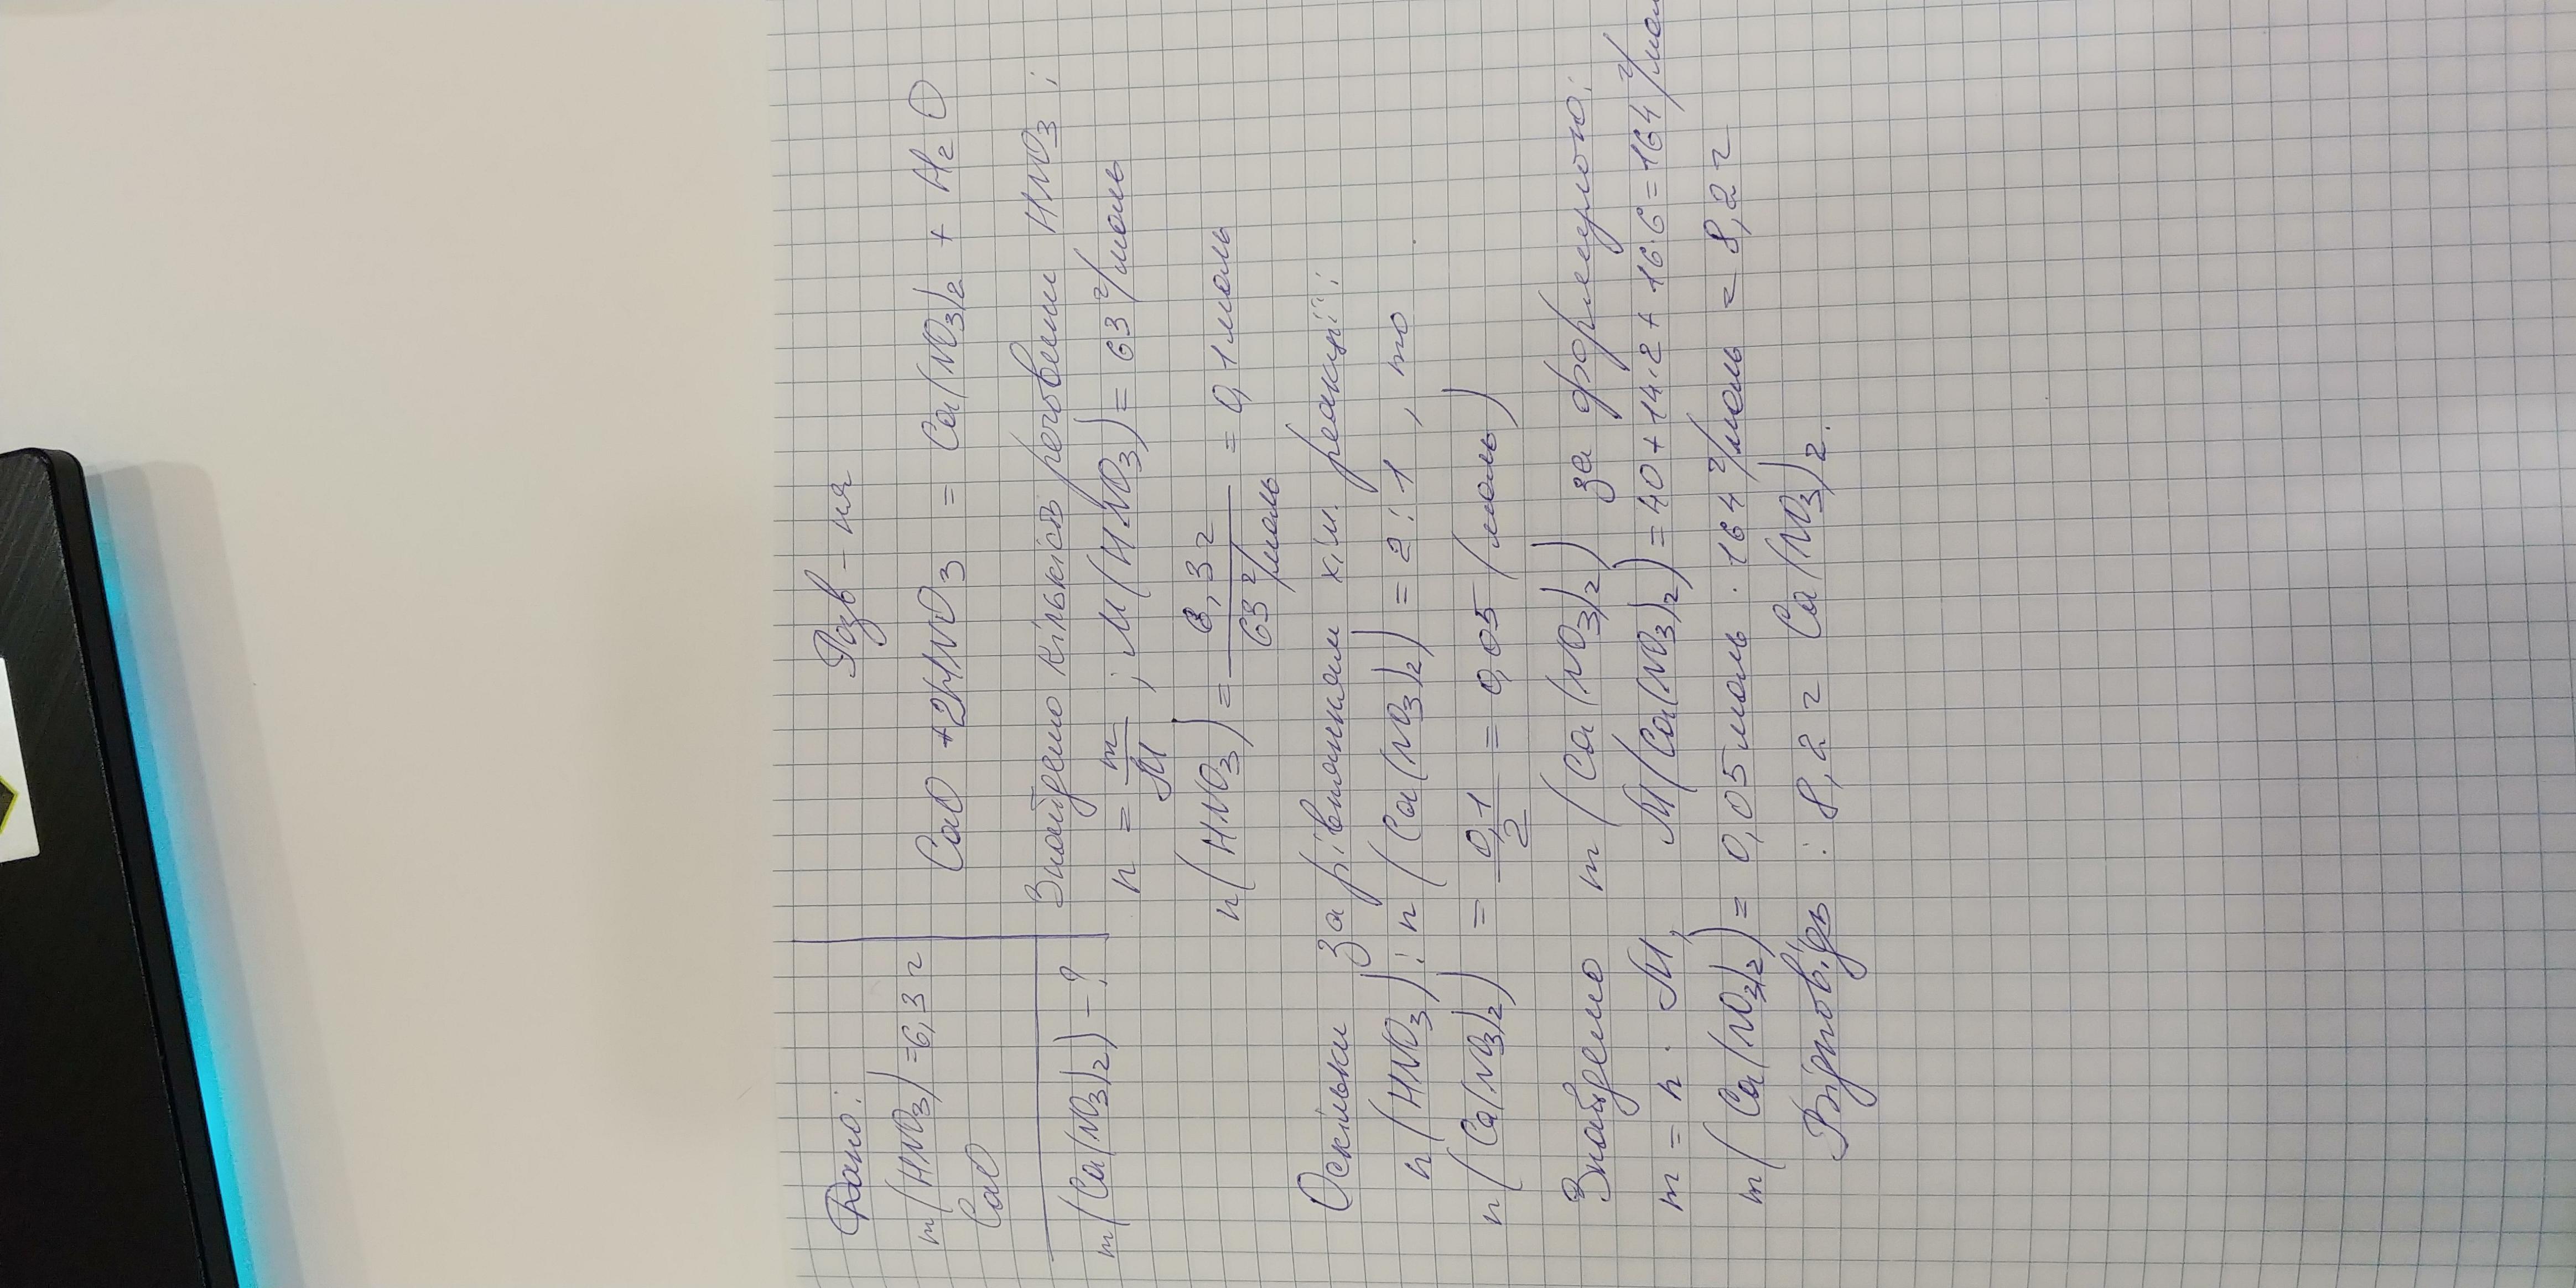 Дано:
m(HNO3)=6,3 г
CaO
m(Ca(NO3)2) – ?
Розв – ня
CaO + 2HNO3 = Ca(NO3)2 + H2O
Знайдемо кількість речовини HNO3:
n = m/M ; M(HNO3) = 63 г/моль
n(HNO3) = 6,3 г / 63 г/моль = 0,1 моль
Оскільки за рівнянням хім. реакції:
n(HNO3) : n(Ca(NO3)2) = 2:1, то
n(Ca(NO3)2) = 0,1/2 = 0,05 (моль)
Знайдемо m(Ca(NO3)2) за формулою:
m = n · M, M(Ca(NO3)2) = 40+14·2+16·6=164 г/мол
m(Ca(NO3)2) = 0,05 моль · 164 г/моль = 8,2 г
Відповідь : 8,2 г Ca(NO3)2.